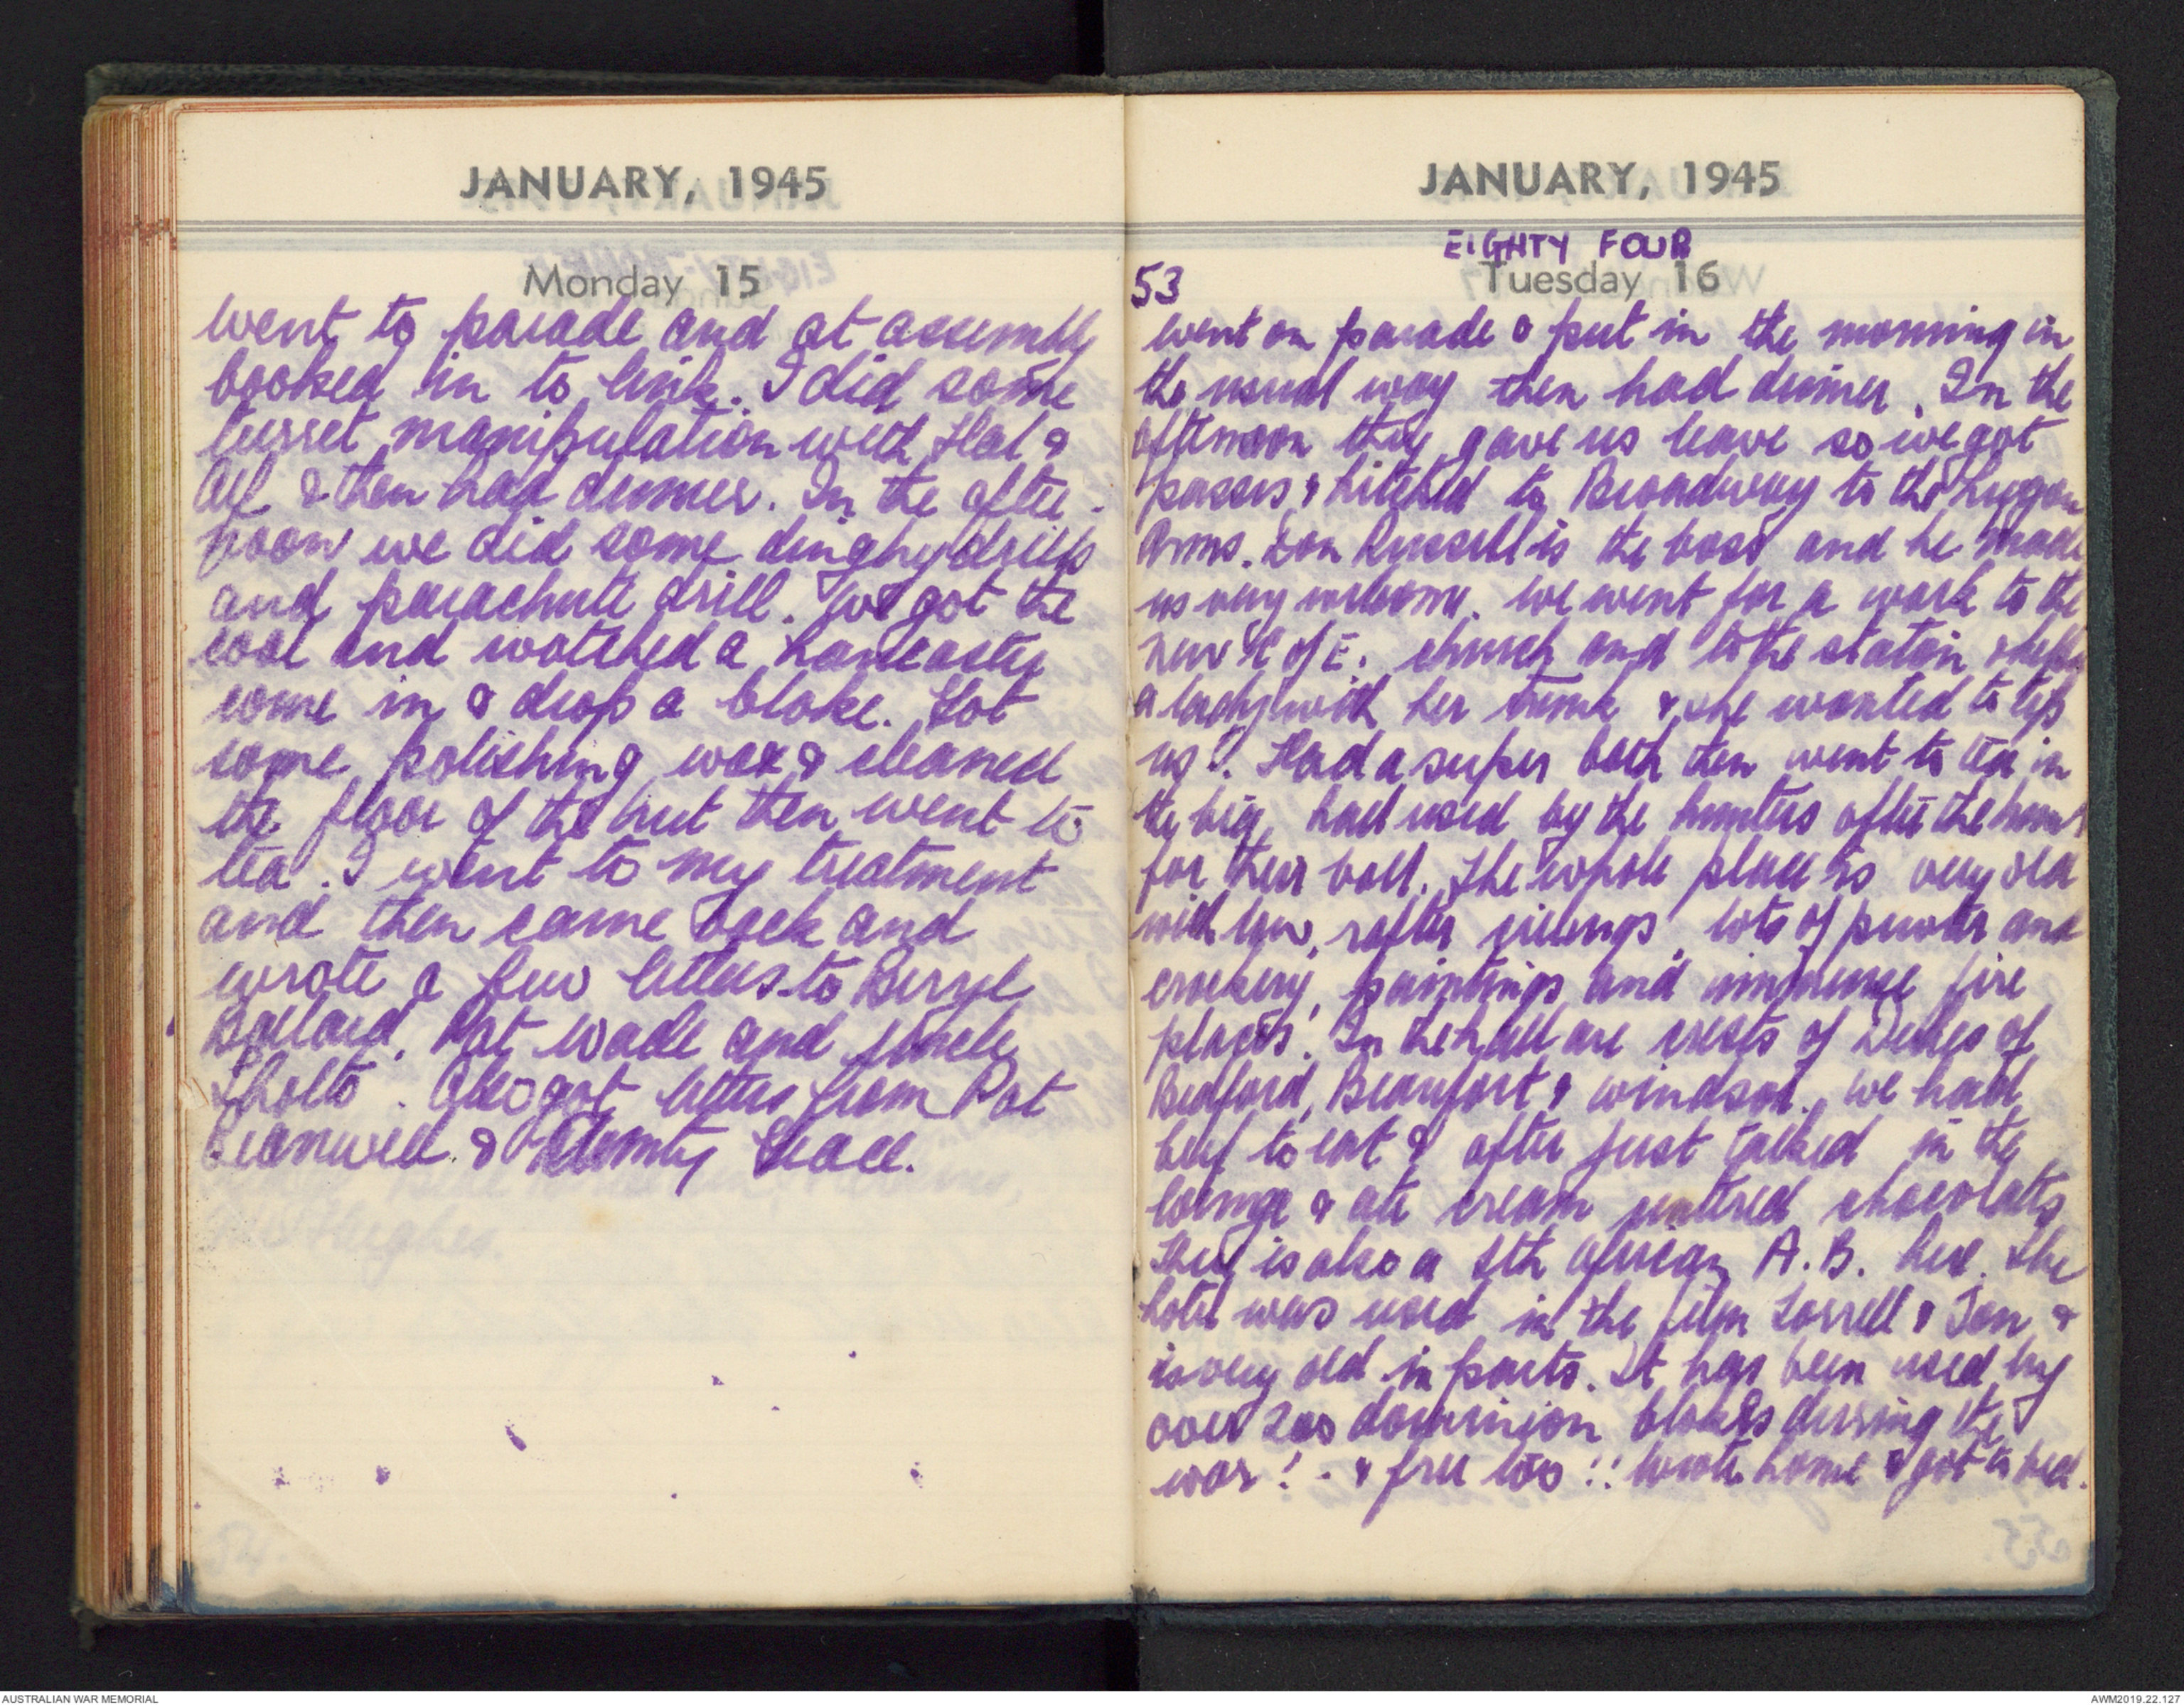 JANUARY, 1945
Monday 15
went to parade and at assembly
booked in to link. I did some
turret manipulation with Hal &
Alf & then had dinner. In the after-
noon we did some dinghy drills
and parachute drill. We got the
coal and watched a Lancaster
come in & drop a bloke. Got
some polishing wax & cleaned
the floor of the hut then went to
tea. I went to my treatment
and then came back and
wrote a few letters to Beryl
Ballard, Pat Wade and Uncle
Sholto. Also got letters from Pat
& Aunty Grace.
JANUARY, 1945
EIGHTY FOUR
53 Tuesday 16
went on parade & put in the morning in
the usual way then had dinner. In the
afternoon they gave us leave so we got
passes & hitched to Broadway to the Lygon
Arms. Don Russell is the boss and he made
us very welcome. We went for a walk to the
new C of E. church and to the station & helped
a lady with her trunk & she wanted to tip
us!. Had a super bath then went to tea in
the big hall used by the hunters after the hunt
for their ball. The whole place is very old
with low, rafter ceilings, lots of pewter and
crockery, paintings and immense fire
places! In the hall are crests of Dukes of
Bedford, Beaufort & Windsor. We had
beef to eat & after just talked in the
lounge & ate cream centred chocolates
There is also a Sth African A.B. here. The
hotel was used in the film Sorrell & Son &
is very old in parts. It has been used by
over 200 dominion blokes during the
war! . & free too!! Wrote home & got to bed.
AUSTRALIAN WAR MEMORIAL
AWM2019.22.127